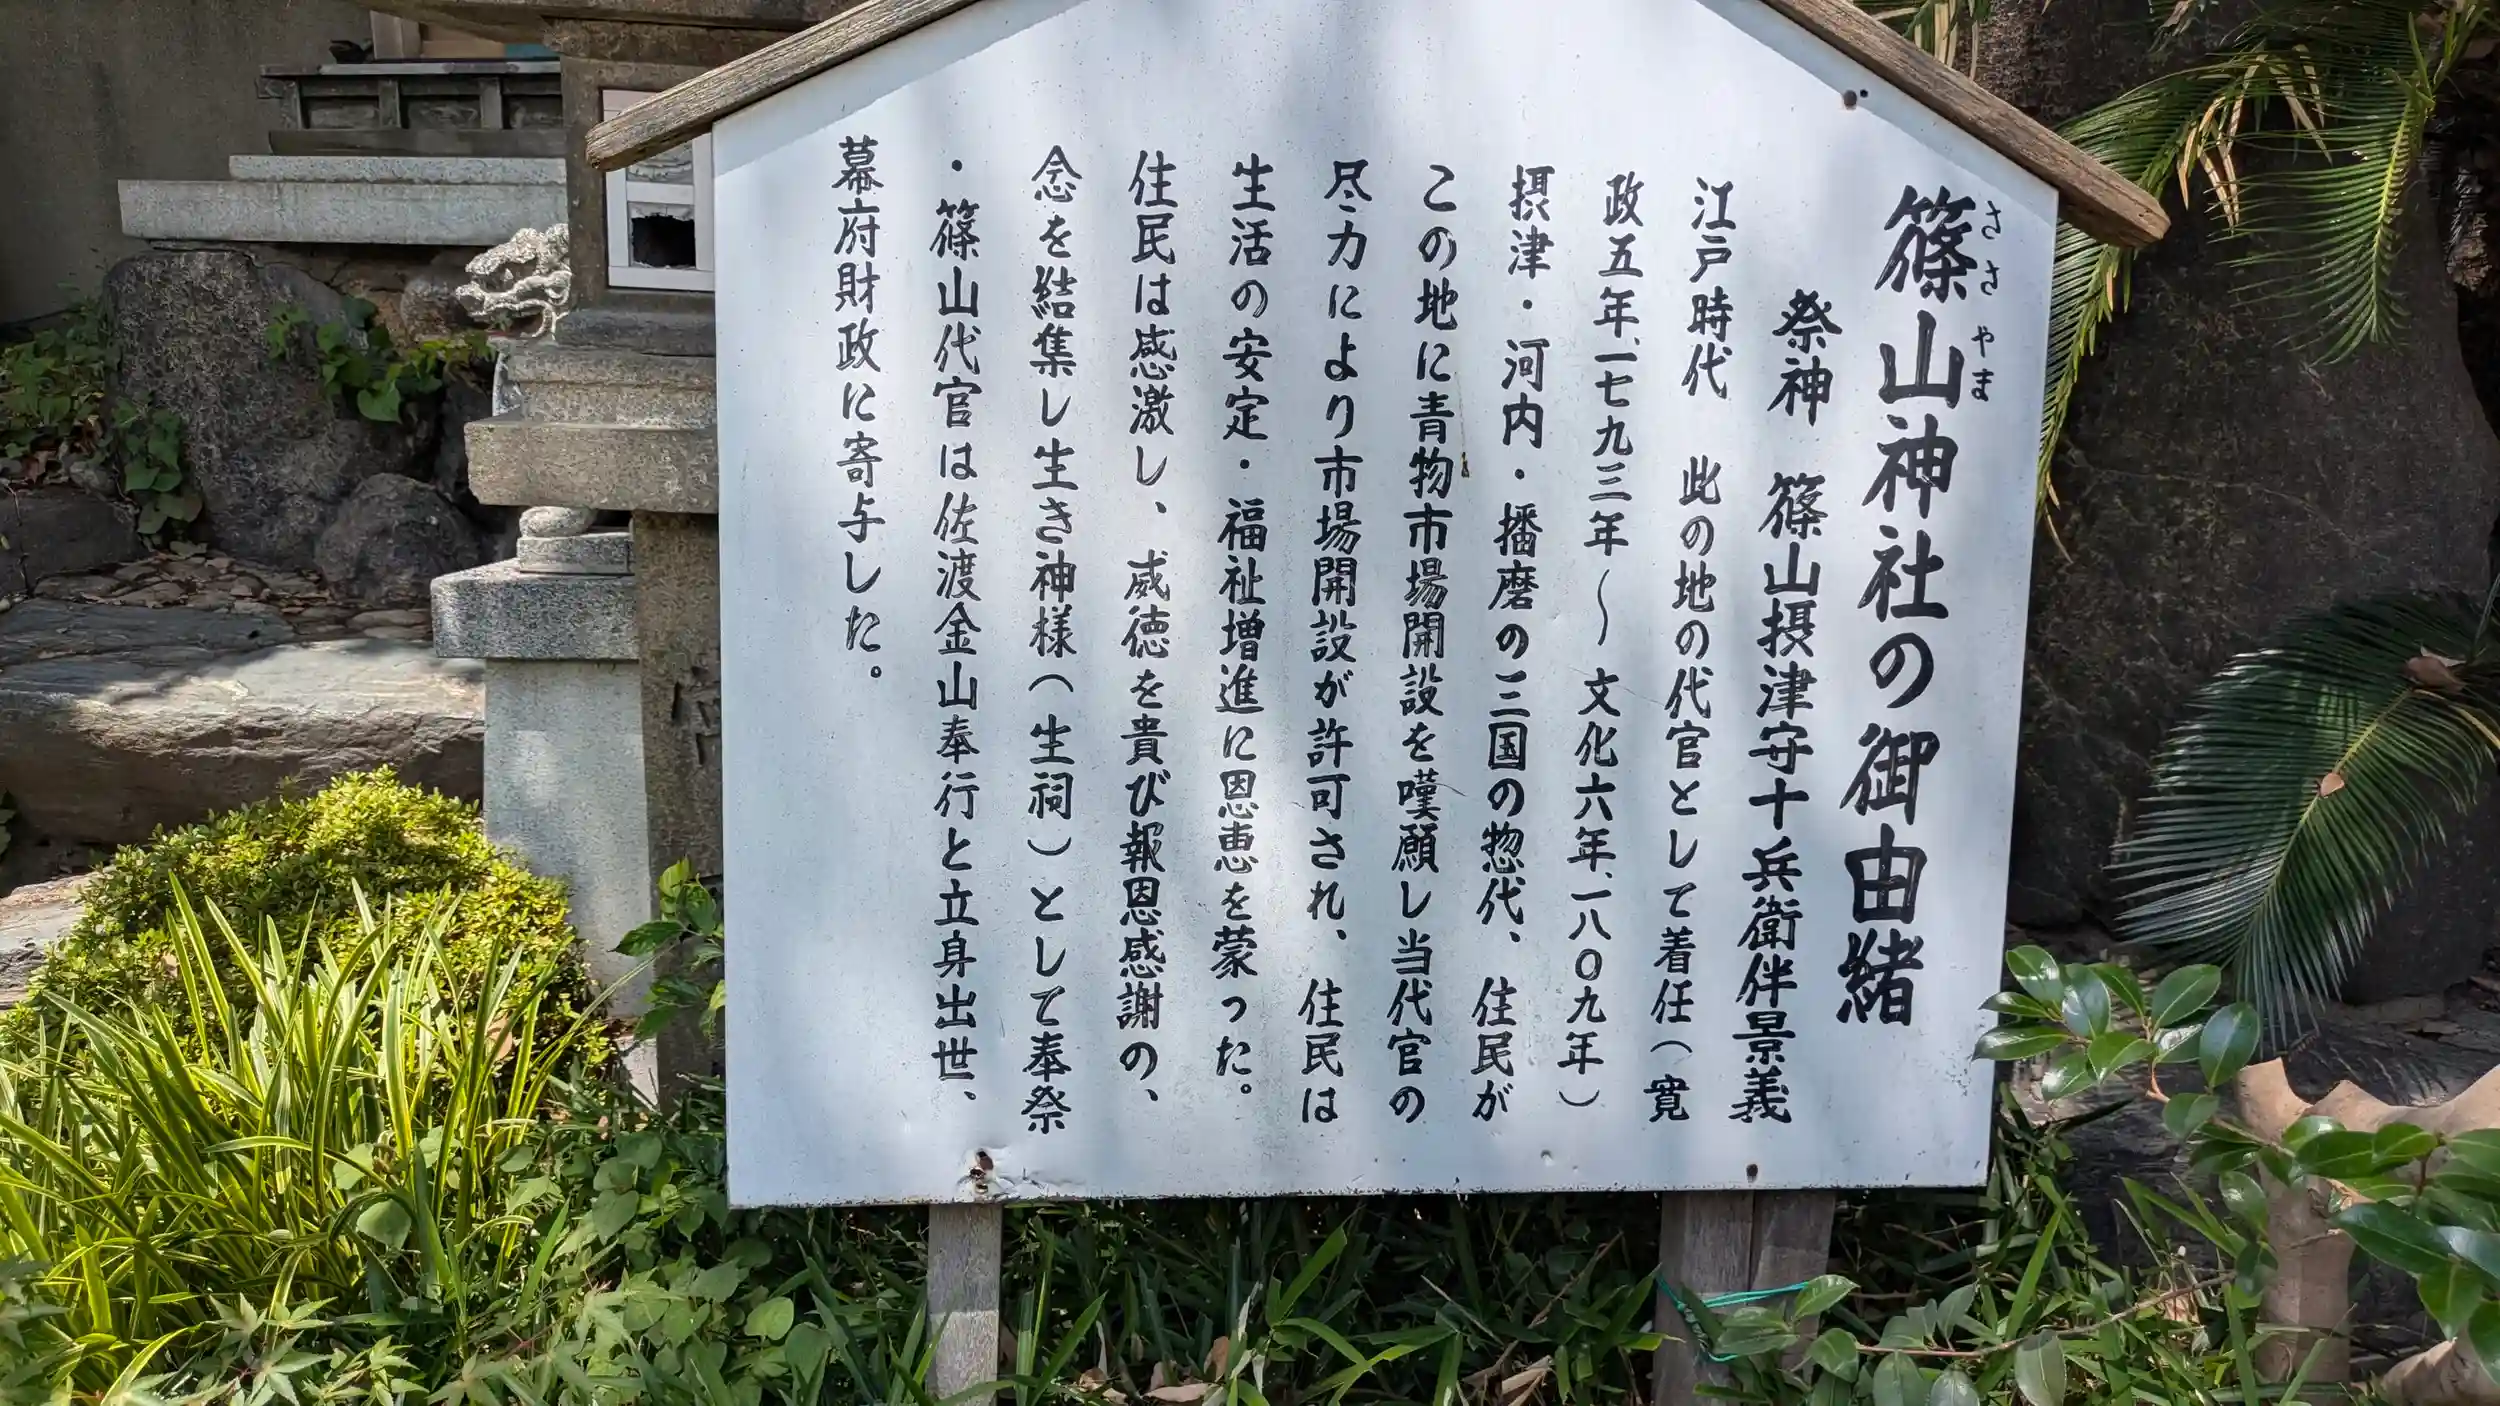 篠山神社の御由緒
ささやま
祭神 篠山摂津守十兵衛伴景義
江戸時代 此の地の代官として着任(寛
政五年、一七九三年〜文化六年、一八〇九年)
摂津・河内・播磨の三国の惣代、住民が
この地に青物市場開設を嘆願し当代官の
尽力により市場開設が許可され、住民は
生活の安定・福祉増進に恩恵を蒙った。
住民は感激し、威徳を貴び報恩感謝の、
念を結集し生き神様(生祠)として奉祭
・篠山代官は佐渡金山奉行と立身出世、
幕府財政に寄与した。